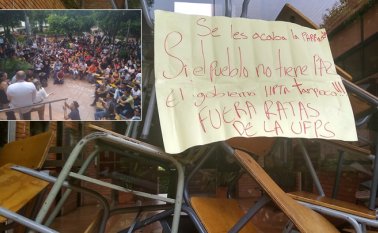 Se les acaba la
Si el pueblo no tiene PAZ
El gobierno UFPS tampoco!!!
FUERA RATAS
DE LA UFPS